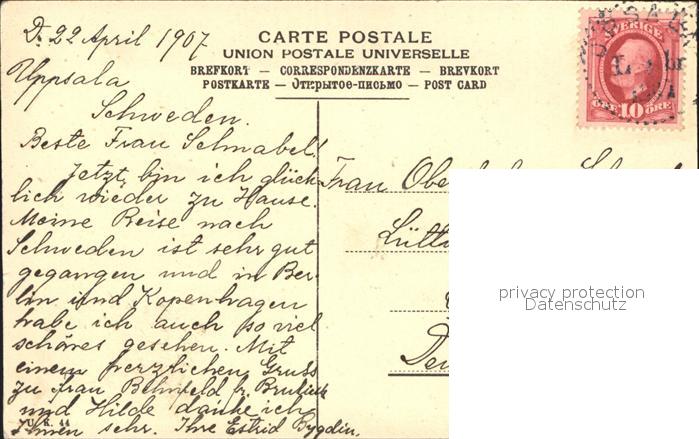 D. 22 April 1907
CARTE POSTALE
UNION POSTALE UNIVERSELLE
BREFKORT — CORRESPONDENZKARTE — BREVKORT
POSTKARTE — Открытое-письмо — POST CARD
SVERIGE
ÖRE 10 ÖRE
Uppsala
Schweden.
Beste Frau Schnabel!
Jetzt bin ich glück-
lich wieder zu Hause.
Meine Reise nach
Schweden ist sehr gut
gegangen und in Ber-
lin und Kopenhagen
habe ich auch so viel
schönes gesehen. Mit
einem herzlichen Gruss
zu frau
und Hilde danke ich
Ihnen sehr. Ihre Estrid Bygdin.
U. K. 44
Frau
privacy protection
Datenschutz